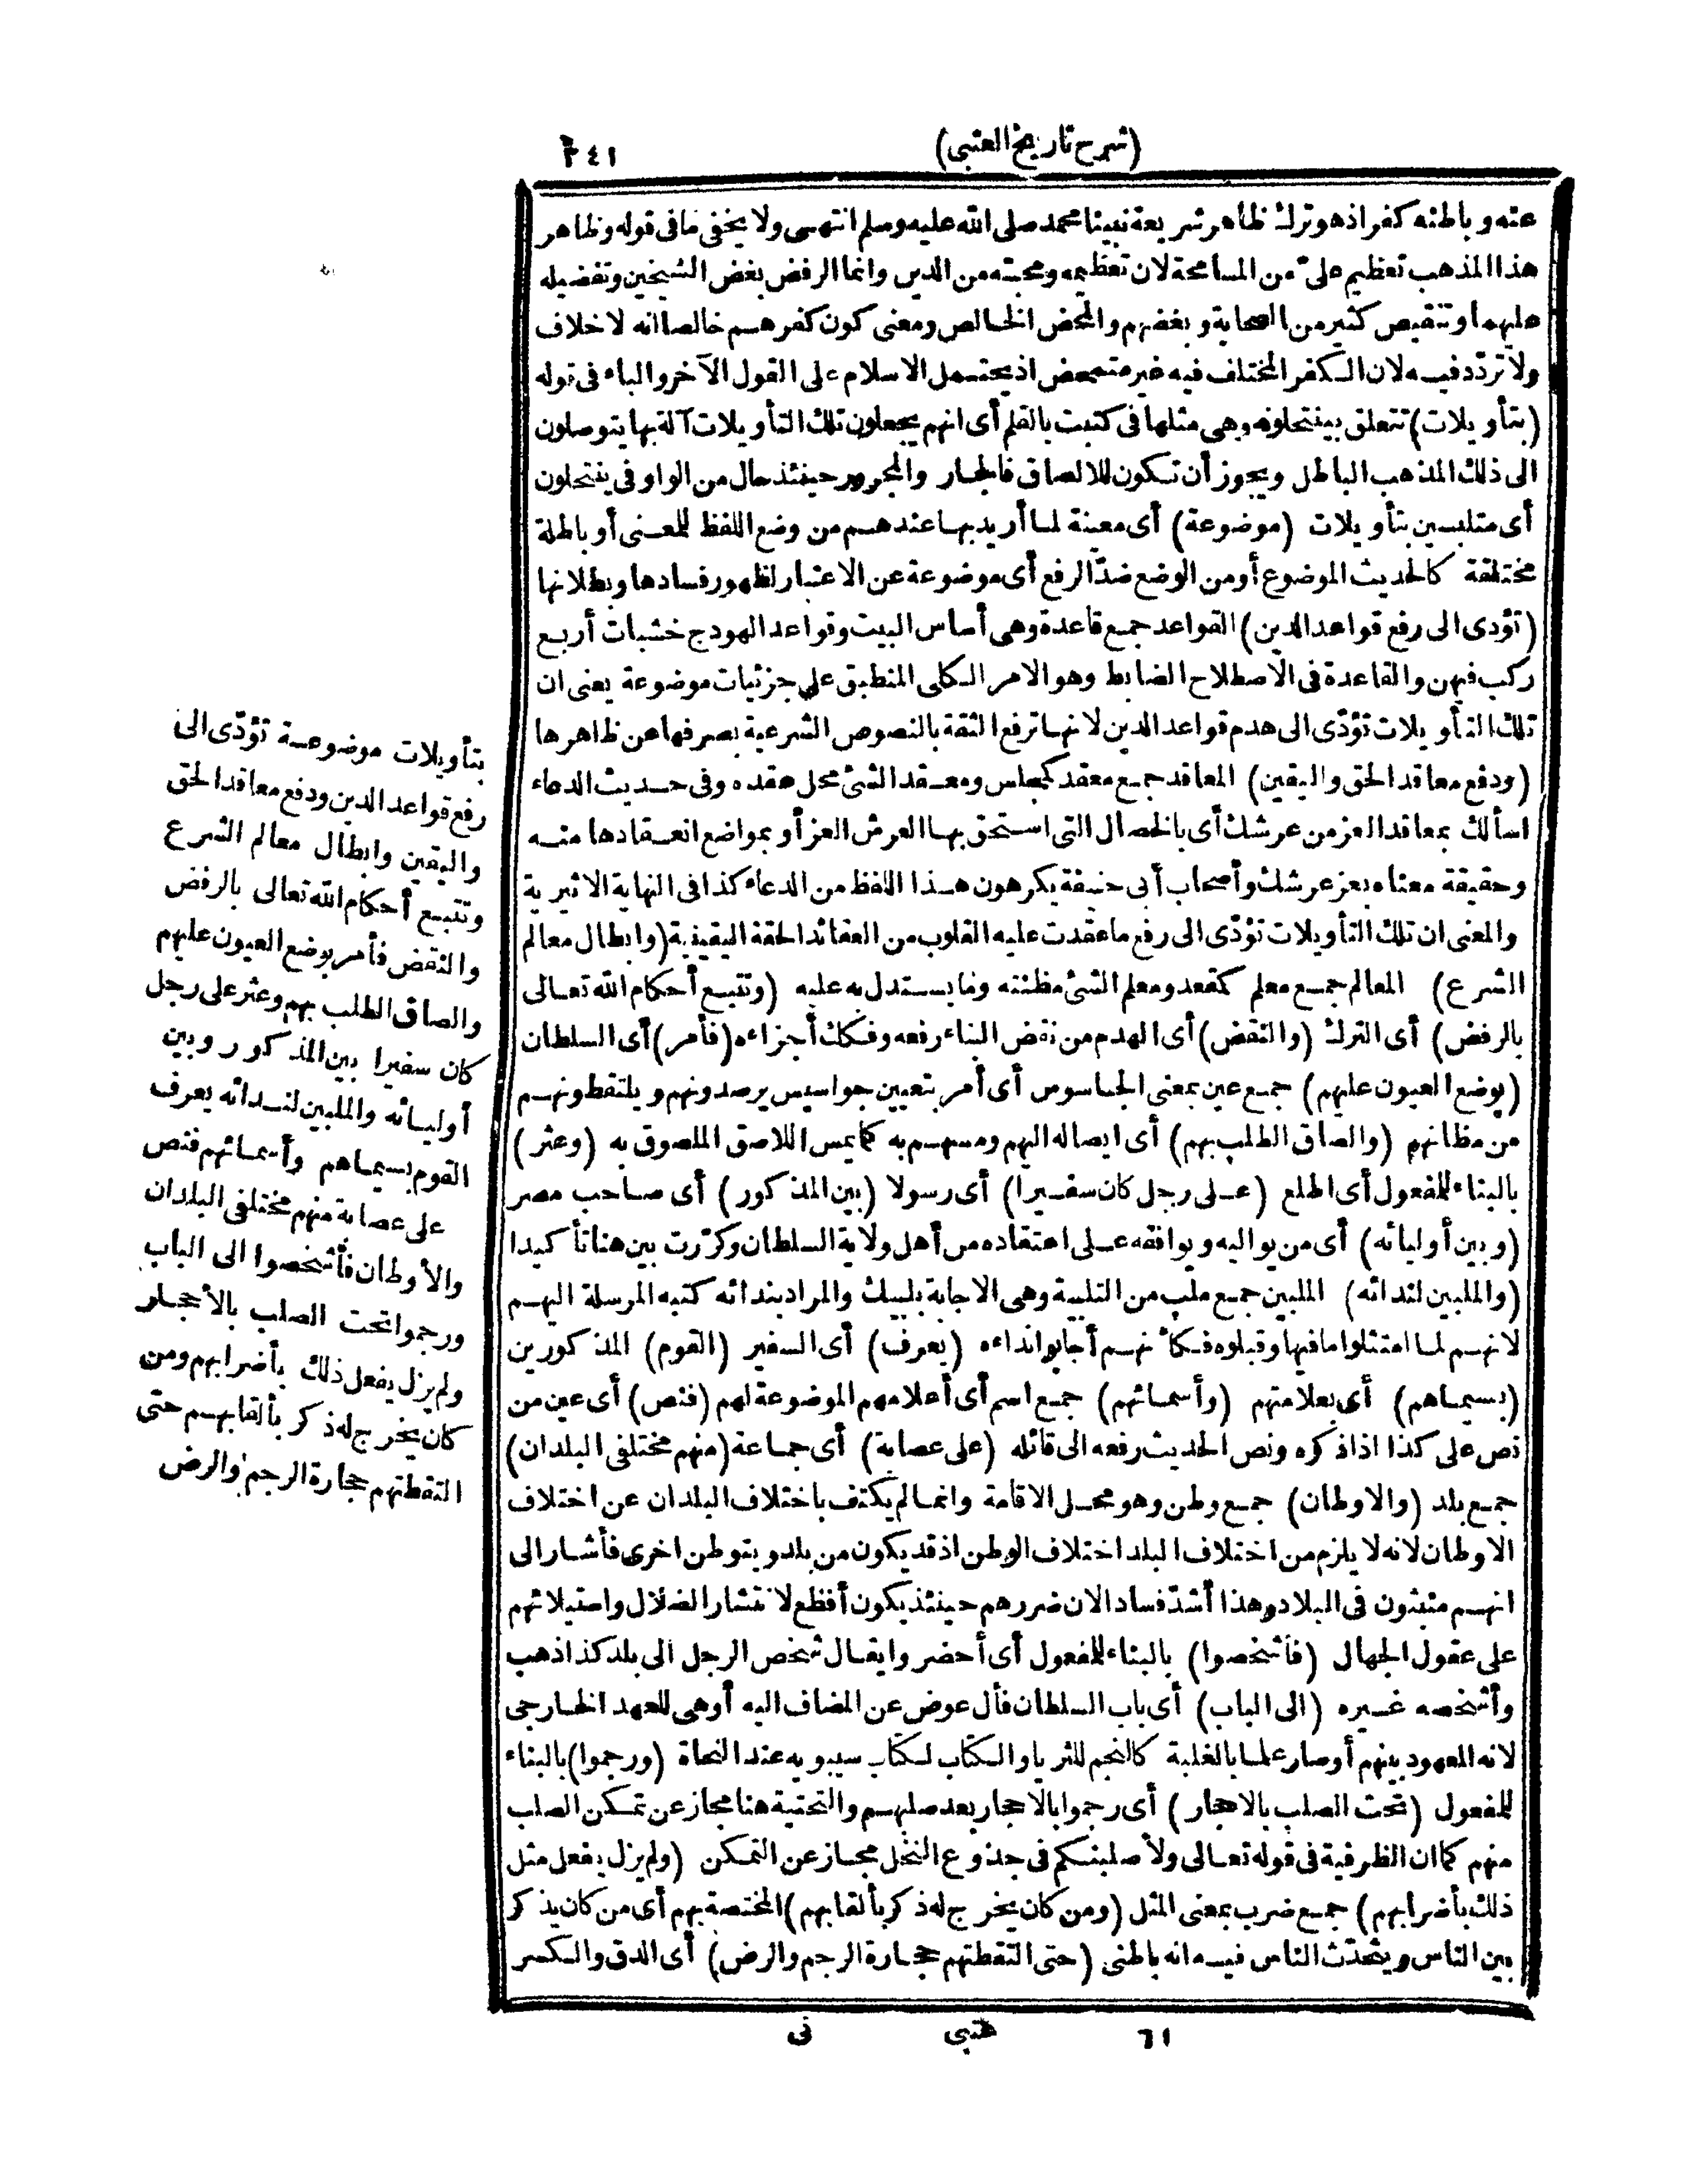 (شرح تاريخ العتبي)
٢٤١
عنه وباطنه كفر اذ هو ترك ظاهر شريعة نبينا محمد صلى الله عليه وسلم انتهى ولا يخفى ما فى قوله وظاهر
هذا المذهب تعظيم على من المسامحة لان تعظيمه ومحبته من الدين وانما الرفض بغض الشيخين وتفضيله
عليهما أو تنقيص كثير من الصحابة وبغضهم والمحض الخالص ومعنى كون كفرهم خالصا انه لا خلاف
ولا تردّد فيه لان الكفر المختلف فيه غير متمحض اذ يحتمل الاسلام على القول الآخر والباء فى قوله
(بتأويلات) تتعلق بينتحلونه وهى مثلها فى كتبت بالقلم أى انهم يجعلون تلك التأويلات آلة بها يتوصلون
الى ذلك المذهب الباطل ويجوز أن تكون للالصاق فالجار والمجرور حينئذ حال من الواو فى ينتحلون
أى متلبسين بتأويلات (موضوعة) أى معينة لما أريد بها عندهم من وضع اللفظ للمعنى أو باطلة
مختلقة كالحديث الموضوع أو من الوضع ضدّ الرفع أى موضوعة عن الاعتبار لظهور فسادها وبطلانها
(تؤدى الى رفع قواعد الدين) القواعد جمع قاعدة وهى أساس البيت وقواعد الهودج خشبات أربع
ركب فيهن والقاعدة فى الاصطلاح الضابط وهو الامر الكلى المنطبق على جزئيات موضوعة يعنى ان
تلك التأويلات تؤدّى الى هدم قواعد الدين لانها ترفع الثقة بالنصوص الشرعية بصرفها عن ظاهرها
(ودفع معاقد الحق واليقين) المعاقد جمع معقد كمجلس ومعقد الشئ محل عقده وفى حديث الدعاء
اسألك بمعاقد العز من عرشك أى بالخصال التى استحق بها العرش العز أو بمواضع انعقادها منه
وحقيقة معناه بعز عرشك وأصحاب أبى حنيفة يكرهون هذا اللفظ من الدعاء كذا فى النهاية الاثيرية
والمعنى ان تلك التأويلات تؤدّى الى رفع ما عقدت عليه القلوب من العقائد الحقة اليقينية (وابطال معالم
الشرع) المعالم جمع معلم كمقعد ومعلم الشئ مظنته وما يستدل به عليه (وتتبع أحكام الله تعالى
بالرفض) أى الترك (والنقض) أى الهدم من نقض البناء رفعه وفكك أجزاءه (فأمر) أى السلطان
(بوضع العيون عليهم) جمع عين بمعنى الجاسوس أى أمر بتعيين جواسيس يرصدونهم ويلتقطونهم
من مظانهم (والصاق الطلب بهم) أى ايصاله اليهم ومسهم به كما يمس اللاصق الملصوق به (وعثر)
بالبناء للمفعول أى اطلع (على رجل كان سفيرا) أى رسولا (بين المذكور) أى صاحب مصر
(وبين أوليائه) أى من يواليه ويوافقه على اعتقاده من أهل ولاية السلطان وكرّرت بين هنا تأكيدا
(والملبين لندائه) الملبين جمع ملب من التلبية وهى الاجابة بلبيك والمراد بندائه كتبه المرسلة اليهم
لانهم لما امتثلوا ما فيها وقبلوه فكأنهم أجابوا نداءه (يعرف) أى السفير (القوم) المذكورين
(بسيماهم) أى بعلامتهم (وأسمائهم) جمع اسم أى أعلامهم الموضوعة لهم (فنص) أى عين من
نص على كذا اذا ذكره ونص الحديث رفعه الى قائله (على عصابة) أى جماعة (منهم مختلفى البلدان)
جمع بلد (والاوطان) جمع وطن وهو محل الاقامة وانما لم يكتف باختلاف البلدان عن اختلاف
الاوطان لانه لا يلزم من اختلاف البلد اختلاف الوطن اذ قد يكون من بلد ويتوطن اخرى فأشار الى
انهم منبثون فى البلاد وهذا أشدّ فسادا لان ضررهم حينئذ يكون أفظع لانتشار الضلال واستيلائهم
على عقول الجهال (فأشخصوا) بالبناء للمفعول أى أحضروا يقال شخص الرجل الى بلد كذا ذهب
وأشخصه غيره (الى الباب) أى باب السلطان فأل عوض عن المضاف اليه أو هى للعهد الخارجى
لانه المعهود بينهم أو صار علما بالغلبة كالنجم للثريا والكتاب لكتاب سيبويه عند النحاة (ورجموا) بالبناء
للمفعول (تحت الصلب بالاحجار) أى رجموا بالاحجار بعد صلبهم والتحتية هنا مجاز عن تمكن الصلب
منهم كما ان الظرفية فى قوله تعالى ولأصلبنكم فى جذوع النخل مجاز عن التمكن (ولم يزل يفعل مثل
ذلك بأضرابهم) جمع ضرب بمعنى المثل (ومن كان يخرج له ذكر بألقابهم) المختصة بهم أى من كان يذكر
بين الناس ويتحدّث الناس فيه انه باطنى (حتى التقطتهم حجارة الرجم والرض) أى الدق والكسر
بتأويلات موضوعة تؤدّى الى
رفع قواعد الدين ودفع معاقد الحق
واليقين وابطال معالم الشرع
وتتبع أحكام الله تعالى بالرفض
والنقض فأمر بوضع العيون عليهم
والصاق الطلب بهم وعثر على رجل
كان سفيرا بين المذكور وبين
أوليائه والملبين لندائه يعرف
القوم بسيماهم وأسمائهم فنص
على عصابة منهم مختلفى البلدان
والأوطان فأشخصوا الى الباب
ورجموا تحت الصلب بالأحجار
ولم يزل يفعل ذلك بأضرابهم ومن
كان يخرج له ذكر بألقابهم حتى
التقطتهم حجارة الرجم والرض
٦١
عتبى
نى